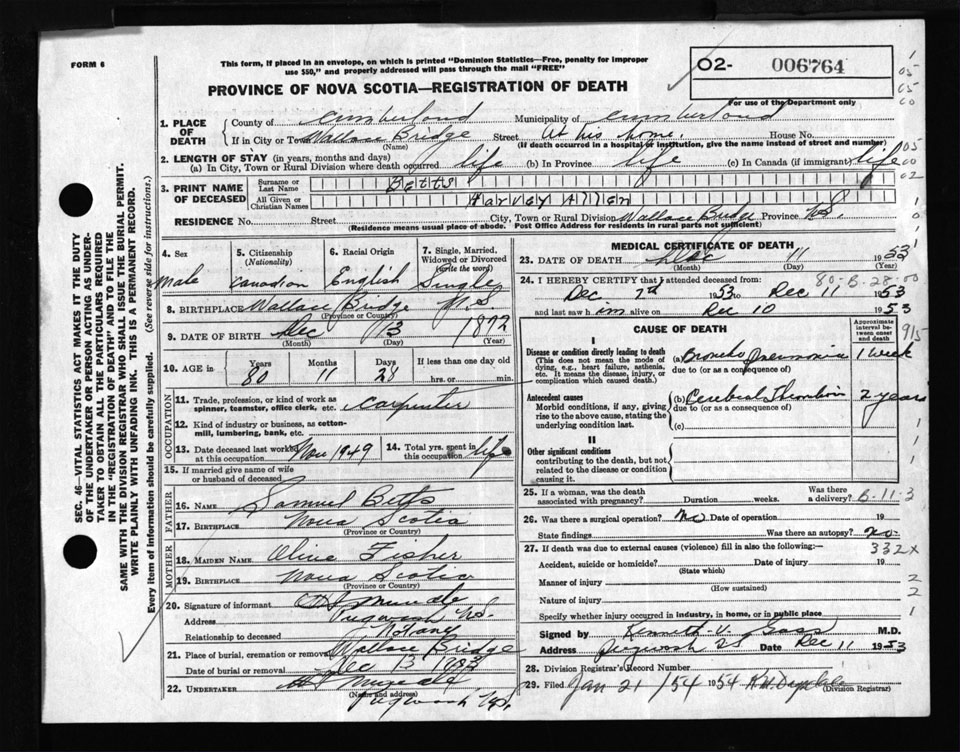 FORM 6
This form, if placed in an envelope, on which is printed "Dominion Statistics—Free, penalty for improper
use $50," and properly addressed will pass through the mail "FREE"
02- 006764
For use of the Department only
PROVINCE OF NOVA SCOTIA—REGISTRATION OF DEATH
1. PLACE OF DEATH County of Cumberland Municipality of Cumberland
If in City or Town Wallace Bridge Street At his home. House No.
(Name) (If death occurred in a hospital or institution, give the name instead of street and number)
2. LENGTH OF STAY (in years, months and days)
(a) In City, Town or Rural Division where death occurred life (b) In Province life (c) In Canada (if immigrant) life
3. PRINT NAME OF DECEASED Surname or Last Name Betts
All Given or Christian Names Harvey Allen
RESIDENCE No. Street City, Town or Rural Division Wallace Bridge Province N.S.
(Residence means usual place of abode. Post Office Address for residents in rural parts not sufficient)
4. Sex Male
5. Citizenship (Nationality) Canadian
6. Racial Origin English
7. Single, Married, Widowed or Divorced (write the word) Single
8. BIRTHPLACE Wallace Bridge N.S.
(Province or Country)
9. DATE OF BIRTH Dec 13 1872
(Month) (Day) (Year)
10. AGE in Years 80 Months 11 Days 28 If less than one day old hrs. or min.
OCCUPATION
11. Trade, profession, or kind of work as spinner, teamster, office clerk, etc. Carpenter
12. Kind of industry or business, as cotton-mill, lumbering, bank, etc.
13. Date deceased last worked at this occupation Nov 1949
14. Total yrs. spent in this occupation life
15. If married give name of wife or husband of deceased
FATHER
16. NAME Samuel Betts
17. BIRTHPLACE Nova Scotia
(Province or Country)
MOTHER
18. MAIDEN NAME Olive Fisher
19. BIRTHPLACE Nova Scotia
(Province or Country)
20. Signature of informant
Address Pugwash N.S.
Relationship to deceased
21. Place of burial, cremation or removal Wallace Bridge
Date of burial or removal Dec 13 1953
22. UNDERTAKER
(Name and address)
Pugwash N.S.
MEDICAL CERTIFICATE OF DEATH
23. DATE OF DEATH Dec 11 1953
(Month) (Day) (Year)
80-B-28-00
24. I HEREBY CERTIFY that I attended deceased from:
Dec 7th 1953 to Dec 11 1953
and last saw him alive on Dec 10 1953
CAUSE OF DEATH
Approximate interval between onset and death
I
Disease or condition directly leading to death
(This does not mean the mode of dying, e.g., heart failure, asthenia, etc. It means the disease, injury, or complication which caused death.)
(a) Broncho Pneumonia 1 week
due to (or as a consequence of)
Antecedent causes
Morbid conditions, if any, giving rise to the above cause, stating the underlying condition last.
(b) Cerebral Thrombosis 2 years
due to (or as a consequence of)
(c)
II
Other significant conditions contributing to the death, but not related to the disease or condition causing it.
25. If a woman, was the death associated with pregnancy? Duration weeks. Was there a delivery?
B-11-3
26. Was there a surgical operation? No Date of operation 19
State findings Was there an autopsy? no.
27. If death was due to external causes (violence) fill in also the following:—
332x
Accident, suicide or homicide? Date of injury 19
(State which)
Manner of injury
(How sustained)
Nature of injury
Specify whether injury occurred in industry, in home, or in public place
Signed by Kenneth V. M.D.
Address Pugwash NS Date Dec 11 1953
28. Division Registrar's Record Number
29. Filed Jan 21/54 1954
(Division Registrar)
SEC. 46—VITAL STATISTICS ACT MAKES IT THE DUTY
OF THE UNDERTAKER OR PERSON ACTING AS UNDER-
TAKER TO OBTAIN ALL THE PARTICULARS REQUIRED
IN THE "REGISTRATION OF DEATH" AND TO FILE THE
SAME WITH THE DIVISION REGISTRAR WHO SHALL ISSUE THE BURIAL PERMIT.
WRITE PLAINLY WITH UNFADING INK. THIS IS A PERMANENT RECORD.
Every item of information should be carefully supplied. (See reverse side for instructions.)